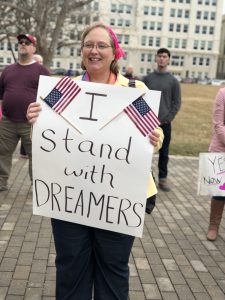 I
Stand
with
DREAMERS
YES
Now